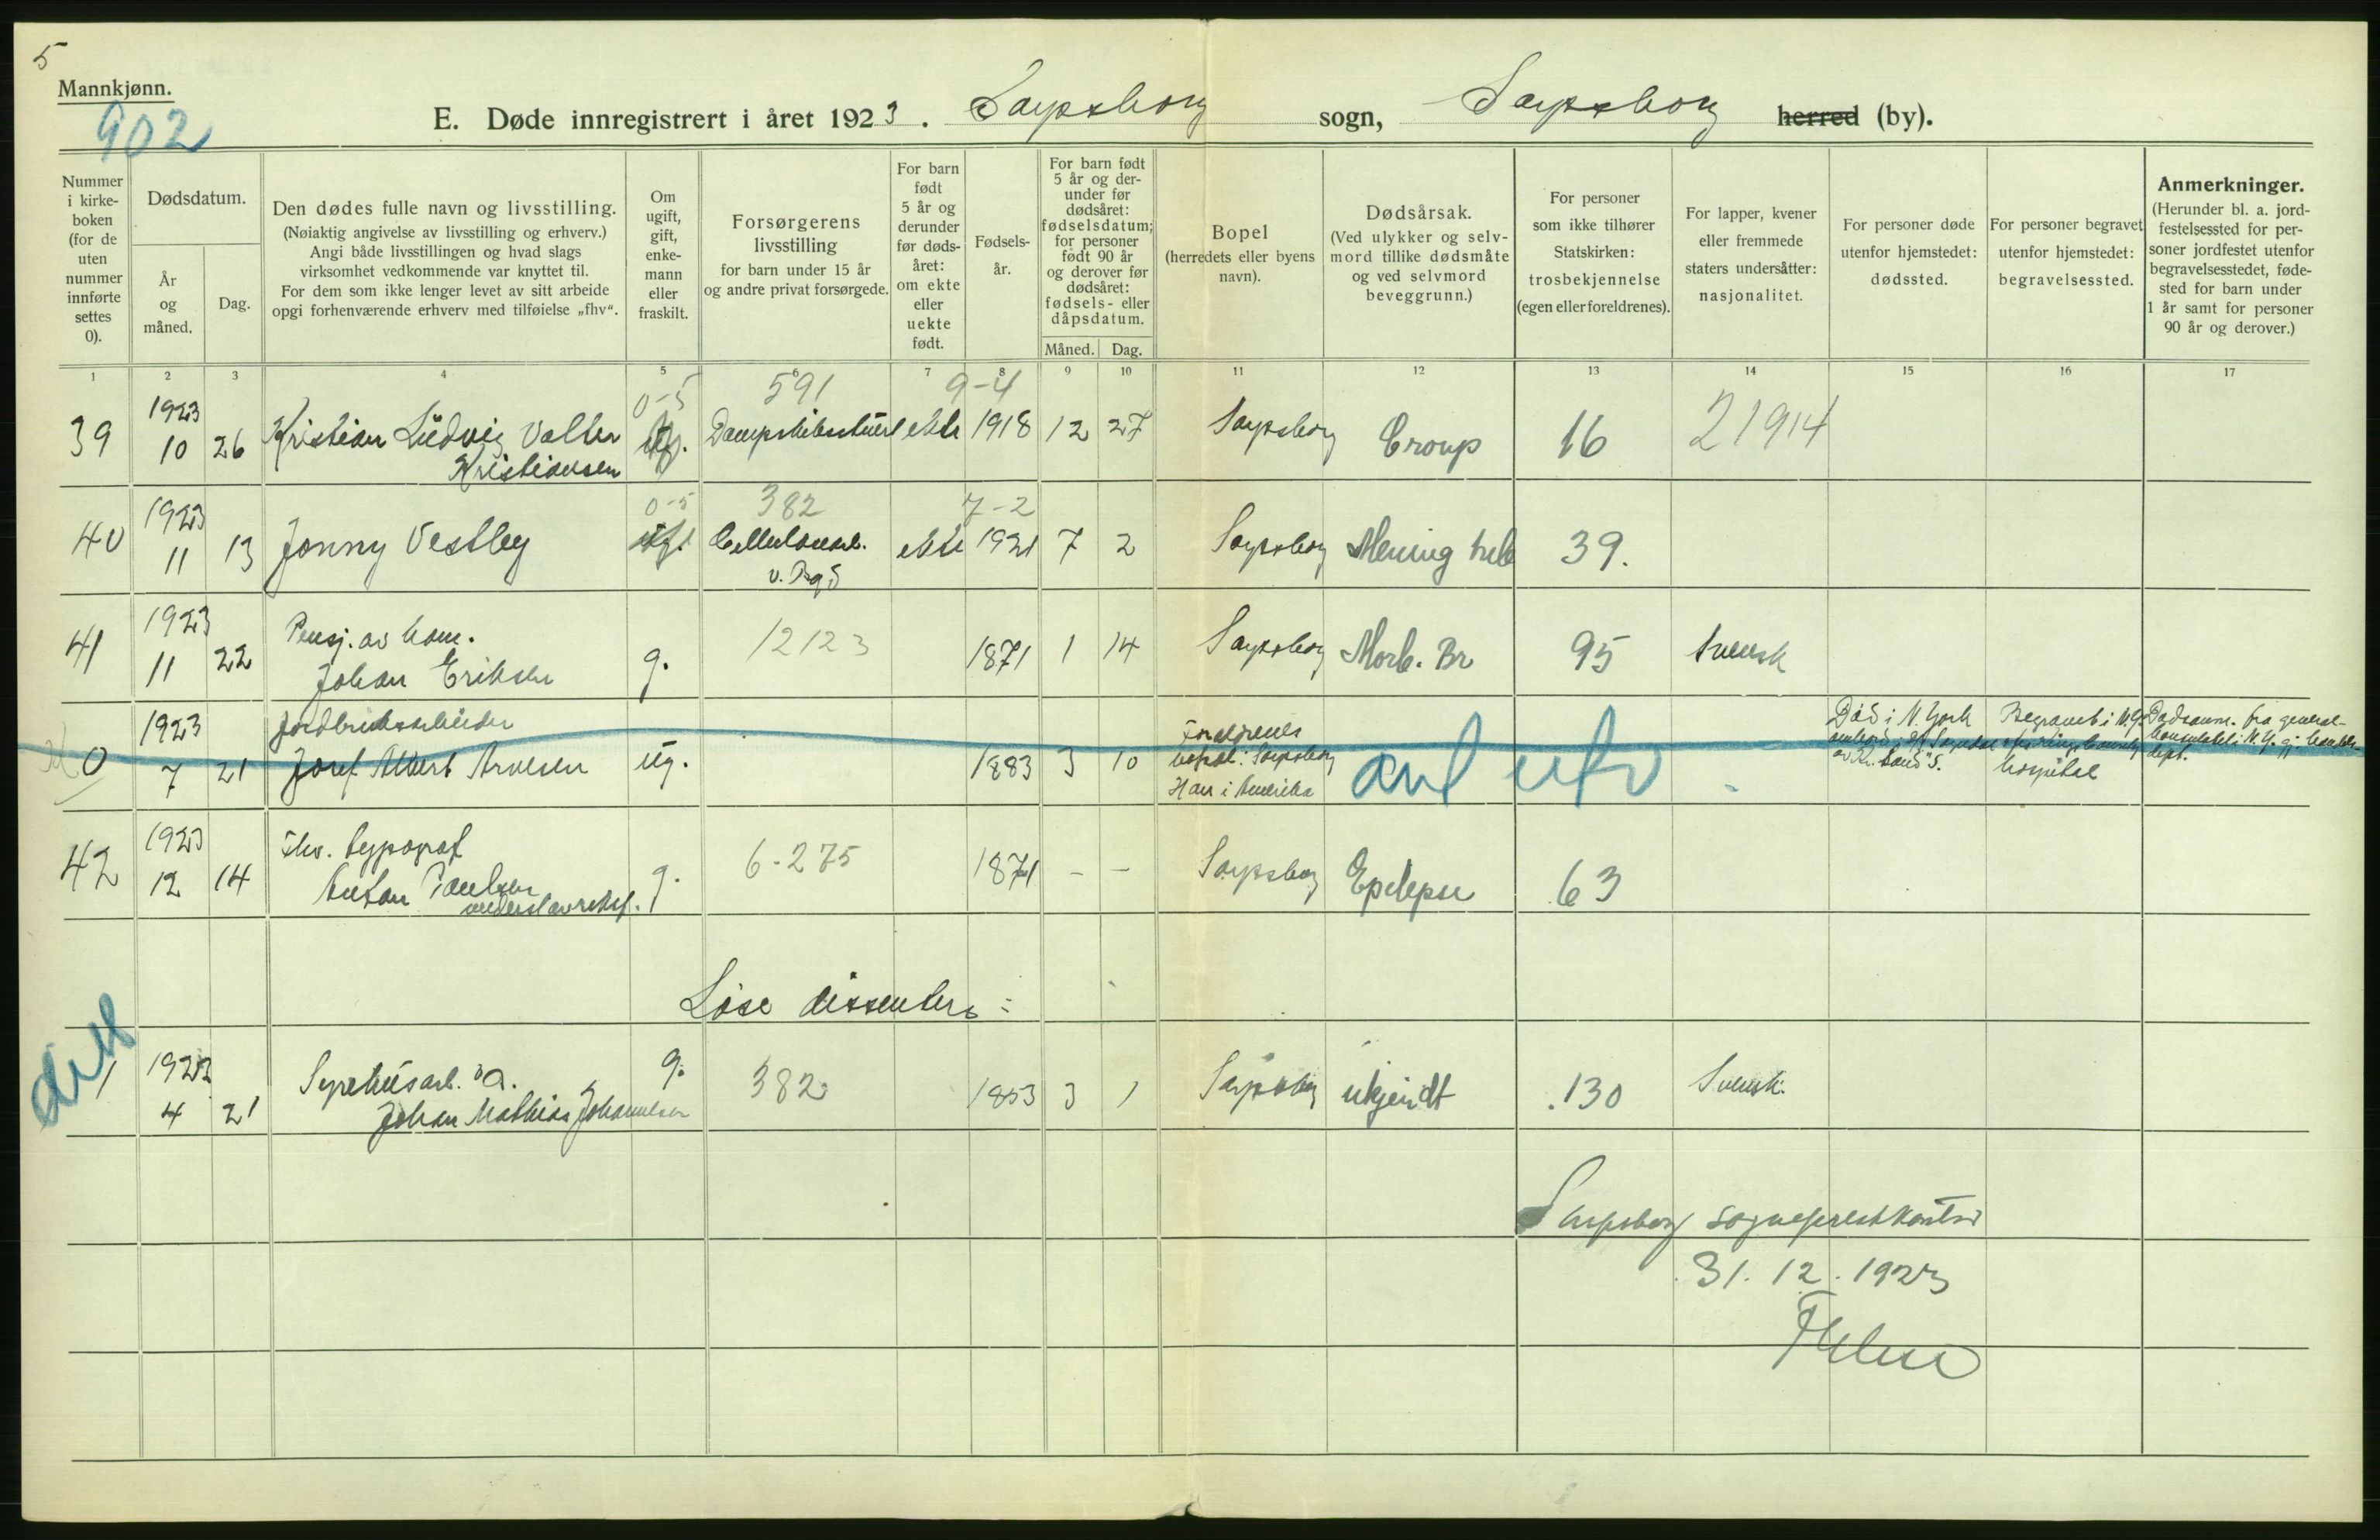 5
Mannkjønn.
902
E. Døde innregistrert i året 1923. Sarpsborg sogn, Sarpsborg herred (by).
Nummer i kirke-boken (for de uten nummer innførte settes 0).
Dødsdatum.
År og måned.
Dag.
Den dødes fulle navn og livsstilling.
(Nøiaktig angivelse av livsstilling og erhverv.)
Angi både livsstillingen og hvad slags
virksomhet vedkommende var knyttet til.
For dem som ikke lenger levet av sitt arbeide
opgi forhenværende erhverv med tilføielse „fhv“.
Om ugift, gift, enke-mann eller fraskilt.
Forsørgerens livsstilling
for barn under 15 år
og andre privat forsørgede.
For barn født 5 år og derunder før døds-året: om ekte eller uekte født.
Fødsels-år.
For barn født 5 år og der-under før dødsåret: fødselsdatum; for personer født 90 år og derover før dødsåret: fødsels- eller dåpsdatum.
Måned.
Dag.
Bopel
(herredets eller byens navn).
Dødsårsak.
(Ved ulykker og selv-mord tillike dødsmåte og ved selvmord beveggrunn.)
For personer som ikke tilhører Statskirken: trosbekjennelse (egen eller foreldrenes).
For lapper, kvener eller fremmede staters undersåtter: nasjonalitet.
For personer døde utenfor hjemstedet: dødssted.
For personer begravet utenfor hjemstedet: begravelsessted.
Anmerkninger.
(Herunder bl. a. jord-festelsessted for per-soner jordfestet utenfor begravelsesstedet, føde-sted for barn under 1 år samt for personer 90 år og derover.)
1 2 3 4 5 6 7 8 9 10 11 12 13 14 15 16 17
0-5 591 9-4
39 1923 10 26 Kristian Ludvig Valter Kristiansen ug. ekte 1918 12 27 Sarpsborg Croup 16 21914
0-5 382 7-2
40 1923 11 13 Jonny Vestby ug. Cellulosearb. v. ekte 1921 7 2 Sarpsborg Mening tub 39.
41 1923 11 22 Pensj. av kom. Johan Eriksen g. 12123 1871 1 14 Sarpsborg Morb. Br 95 Svensk
0 1923 7 21 Jordbruksarbeider Josef Albert Arnesen ug. 1883 3 10 Foreldrenes bopel: Sarpsborg Han i Amerika
Død i N. York
Begravet i N.Y. hospital
Dødsanm. fra general-konsulatet i N.Y. gj. dept.
42 1923 12 14 Fhv. typograf Anton Paulsen g. 6-275 1871 - - Sarpsborg Epilepsi 63
Løse dissentere:
1 1922 4 21 Syrehusarb. Johan Mathias Johannesen g. 382 1853 3 1 Sarpsborg ukjendt .130 Svensk.
Sarpsborg sogneprestkontor
31. 12. 1923